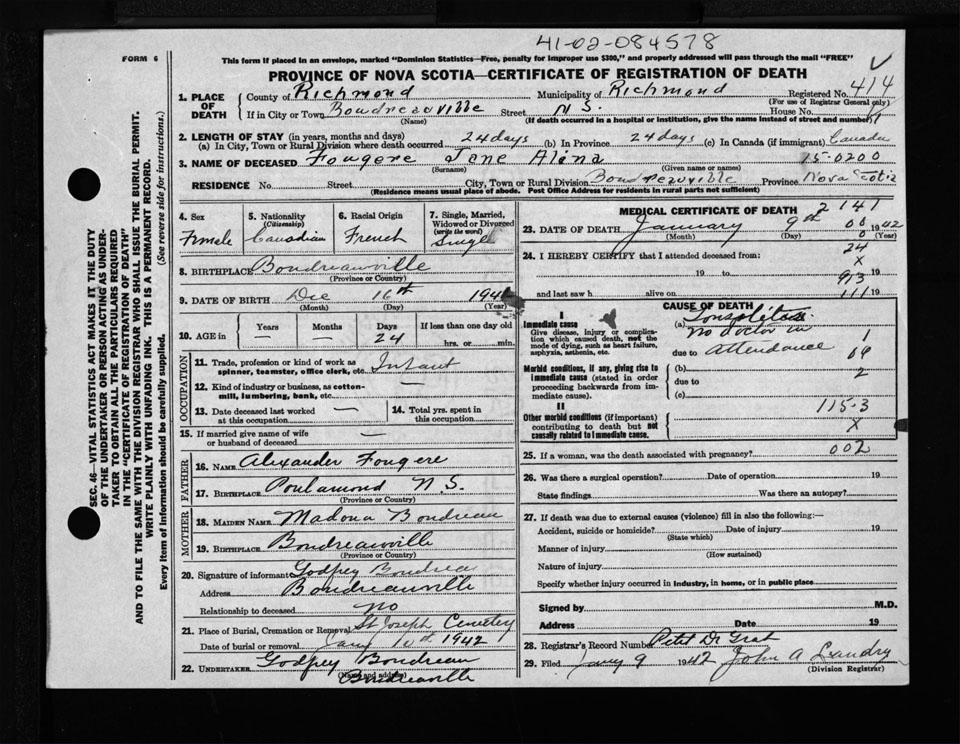 41-02-084578
FORM 6
This form if placed in an envelope, marked "Dominion Statistics—Free, penalty for improper use $300," and properly addressed will pass through the mail "FREE"
PROVINCE OF NOVA SCOTIA—CERTIFICATE OF REGISTRATION OF DEATH
1. PLACE OF DEATH
County of Richmond Municipality of Richmond Registered No. 414
(For use of Registrar General only)
If in City or Town Boudreauville Street N S. House No.
(Name) (If death occurred in a hospital or institution, give the name instead of street and number)
2. LENGTH OF STAY (in years, months and days)
(a) In City, Town or Rural Division where death occurred 24 days (b) In Province 24 days (c) In Canada (if immigrant) Canada
3. NAME OF DECEASED Fougere Jane Alina 15-0200
(Surname) (Given name or names)
RESIDENCE No. Street City, Town or Rural Division Boudreauville Province Nova Scotia
(Residence means usual place of abode. Post Office Address for residents in rural parts not sufficient)
4. Sex Female
5. Nationality (Citizenship) Canadian
6. Racial Origin French
7. Single, Married, Widowed or Divorced (write the word) Singel
8. BIRTHPLACE Boudreauville
(Province or County)
9. DATE OF BIRTH Dec 16th 194
(Month) (Day) (Year)
10. AGE in Years — Months — Days 24 If less than one day old hrs. or min.
OCCUPATION
11. Trade, profession or kind of work as spinner, teamster, office clerk, etc. Infant
12. Kind of industry or business, as cotton-mill, lumbering, bank, etc. —
13. Date deceased last worked at this occupation —
14. Total yrs. spent in this occupation
15. If married give name of wife or husband of deceased —
FATHER
16. NAME Alexander Fougere
17. BIRTHPLACE Poulamond N.S.
(Province or Country)
MOTHER
18. MAIDEN NAME Madona Boudreau
19. BIRTHPLACE Boudreauville
(Province or Country)
20. Signature of informant Godfrey Boudreau
Address Boudreauville
Relationship to deceased no
21. Place of Burial, Cremation or Removal St Joseph Cemetery
Date of burial or removal Jany 10th 1942
22. UNDERTAKER Godfrey Boudreau
(Name and address)
Boudreauville
MEDICAL CERTIFICATE OF DEATH 2141
23. DATE OF DEATH January 9th 1942
(Month) (Day) (Year)
00
0
24. I HEREBY CERTIFY that I attended deceased from: 24
X
19 to 19
913
and last saw h alive on 19
111
CAUSE OF DEATH
I
Immediate cause
Give disease, injury or complication which caused death, not the mode of dying, such as heart failure, asphyxia, asthenia, etc.
(a) Tonsolitas
no doctor in 1
due to attendance 09
Morbid conditions, if any, giving rise to immediate cause (stated in order proceeding backwards from immediate cause).
(b) 2
due to
(c)
II
Other morbid conditions (if important) contributing to death but not causally related to immediate cause.
115.3
X
25. If a woman, was the death associated with pregnancy? 002
26. Was there a surgical operation? Date of operation 19
State findings Was there an autopsy?
27. If death was due to external causes (violence) fill in also the following:—
Accident, suicide or homicide? Date of injury 19
(State which)
Manner of injury
(How sustained)
Nature of injury
Specify whether injury occurred in industry, in home, or in public place
Signed by M.D.
Address Date 19
28. Registrar's Record Number Petit De Grat
29. Filed Jany 9 1942 John A Landry
(Division Registrar)
SEC. 46—VITAL STATISTICS ACT MAKES IT THE DUTY
OF THE UNDERTAKER OR PERSON ACTING AS UNDER-
TAKER TO OBTAIN ALL THE PARTICULARS REQUIRED
IN THE "CERTIFICATE OF REGISTRATION OF DEATH"
AND TO FILE THE SAME WITH THE DIVISION REGISTRAR WHO SHALL ISSUE THE BURIAL PERMIT.
WRITE PLAINLY WITH UNFADING INK. THIS IS A PERMANENT RECORD.
Every item of information should be carefully supplied. (See reverse side for instructions.)